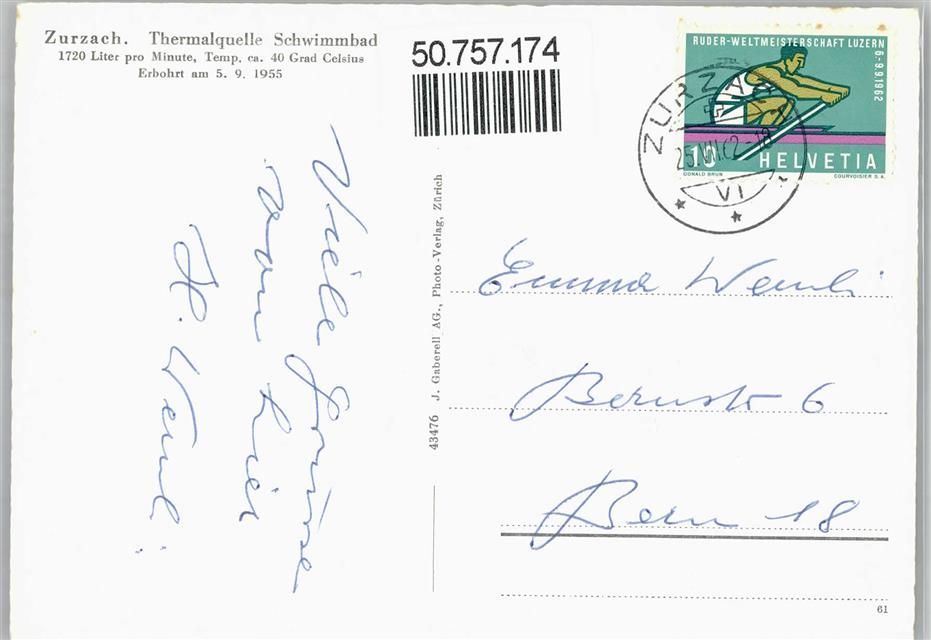 Zurzach. Thermalquelle Schwimmbad
1720 Liter pro Minute, Temp. ca. 40 Grad Celsius
Erbohrt am 5. 9. 1955
50.757.174
RUDER-WELTMEISTERSCHAFT LUZERN
6-9.9.1962
10 HELVETIA
DONALD BRUN COURVOISIER S.A.
ZURZACH
VI
Viele Grüsse
von hier
H.
43476 J. Gaberell AG., Photo-Verlag, Zürich
Emma
Bernstr 6
Bern 18
61